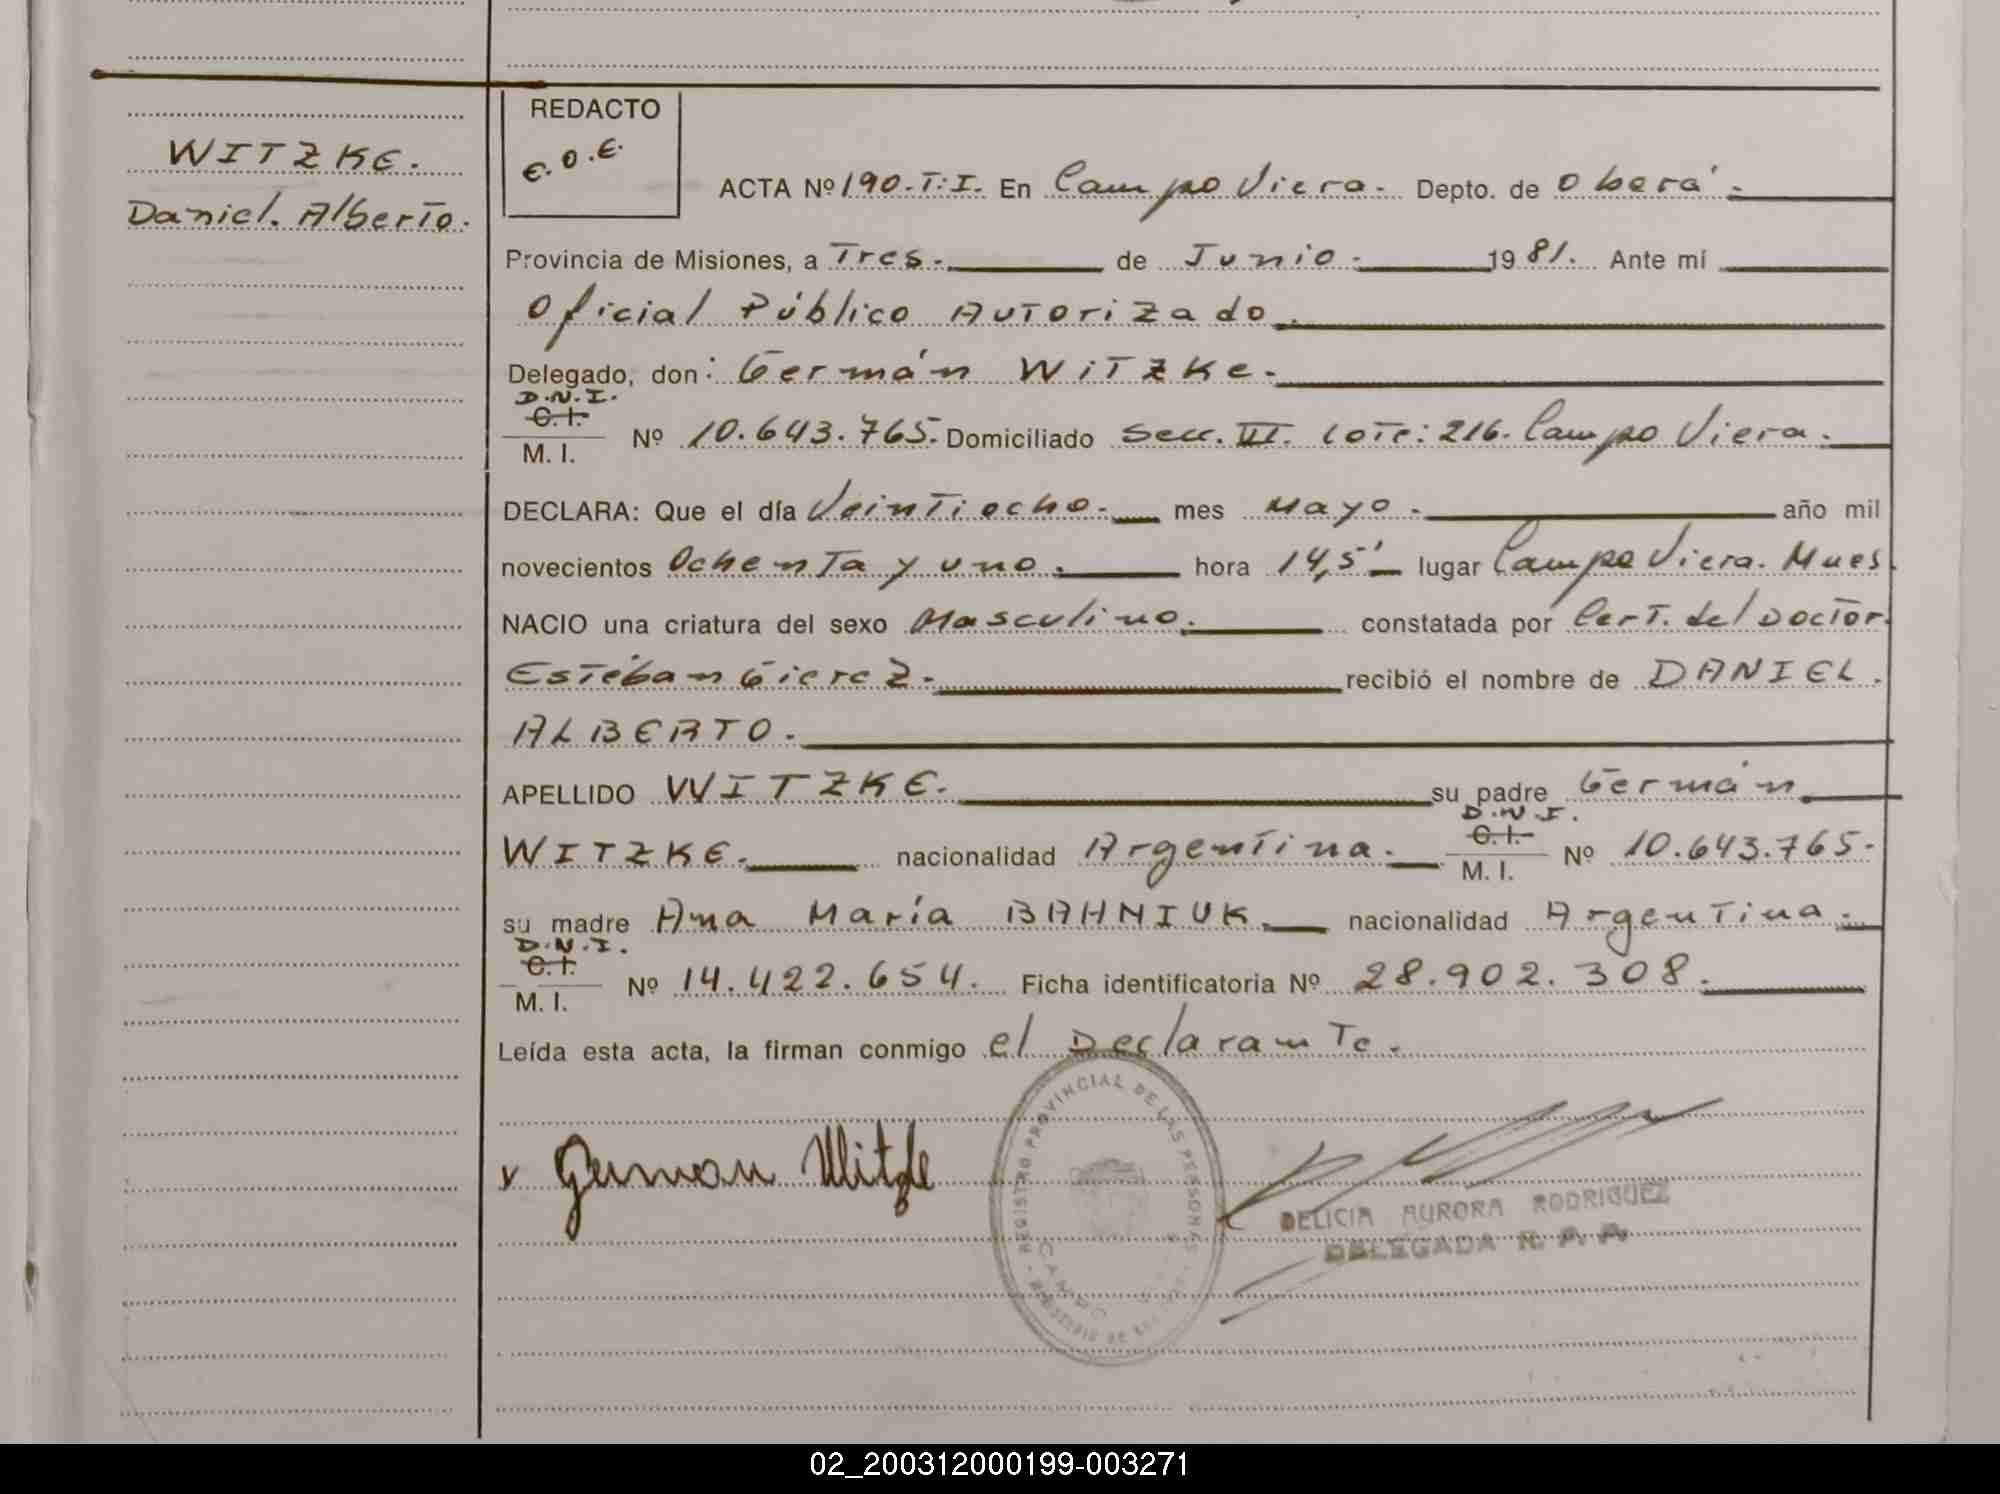 WITZKE.
Daniel. Alberto.
REDACTO
E.O.E.
ACTA Nº 190.T:I. En Campo Viera. Depto. de Oberá.
Provincia de Misiones, a Tres. de Junio. 1981. Ante mí
Oficial Público Autorizado.
Delegado, don: Germán Witzke.
D.N.I.
C.I.
M. I. Nº 10.643.765. Domiciliado Secc. III. Lote: 216. Campo Viera.
DECLARA: Que el día Veintiocho. mes Mayo. año mil
novecientos Ochenta y uno. hora 14,5' lugar Campo Viera. Mnes.
NACIO una criatura del sexo Masculino. constatada por Cert. del Doctor.
Estéban Gierez. recibió el nombre de DANIEL.
ALBERTO.
APELLIDO WITZKE. su padre Germán
D.N.I.
C.I.
WITZKE. nacionalidad Argentina. M. I. Nº 10.643.765.
su madre Ana María BAHNIUK. nacionalidad Argentina.
D.N.I.
C.I.
M. I. Nº 14.422.654. Ficha identificatoria Nº 28.902.308.
Leída esta acta, la firman conmigo el Declarante.
German Witzke
REGISTRO PROVINCIAL DE LAS PERSONAS
DELICIA AURORA RODRIGUEZ
DELEGADA R. P. P.
02_200312000199-003271